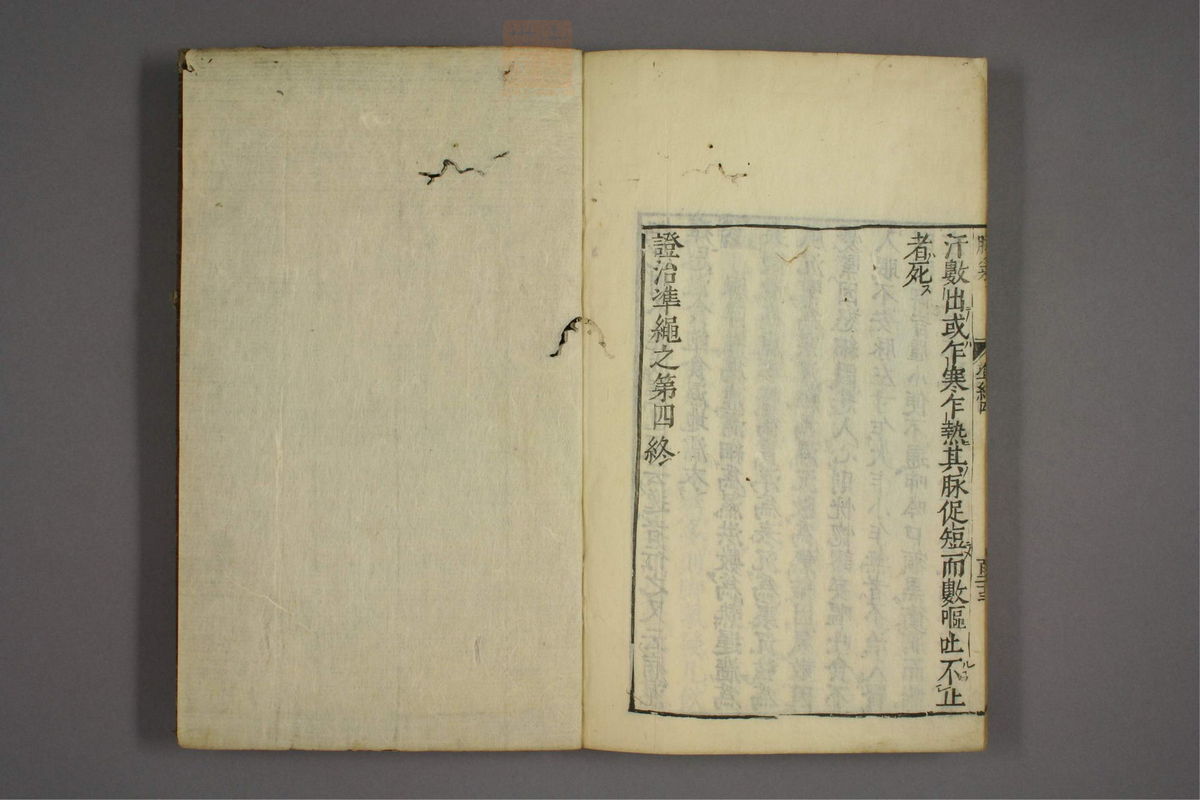 汗數出或乍寒乍熱其脉促短而數嘔吐不止
者死ス
證治準繩之第四終